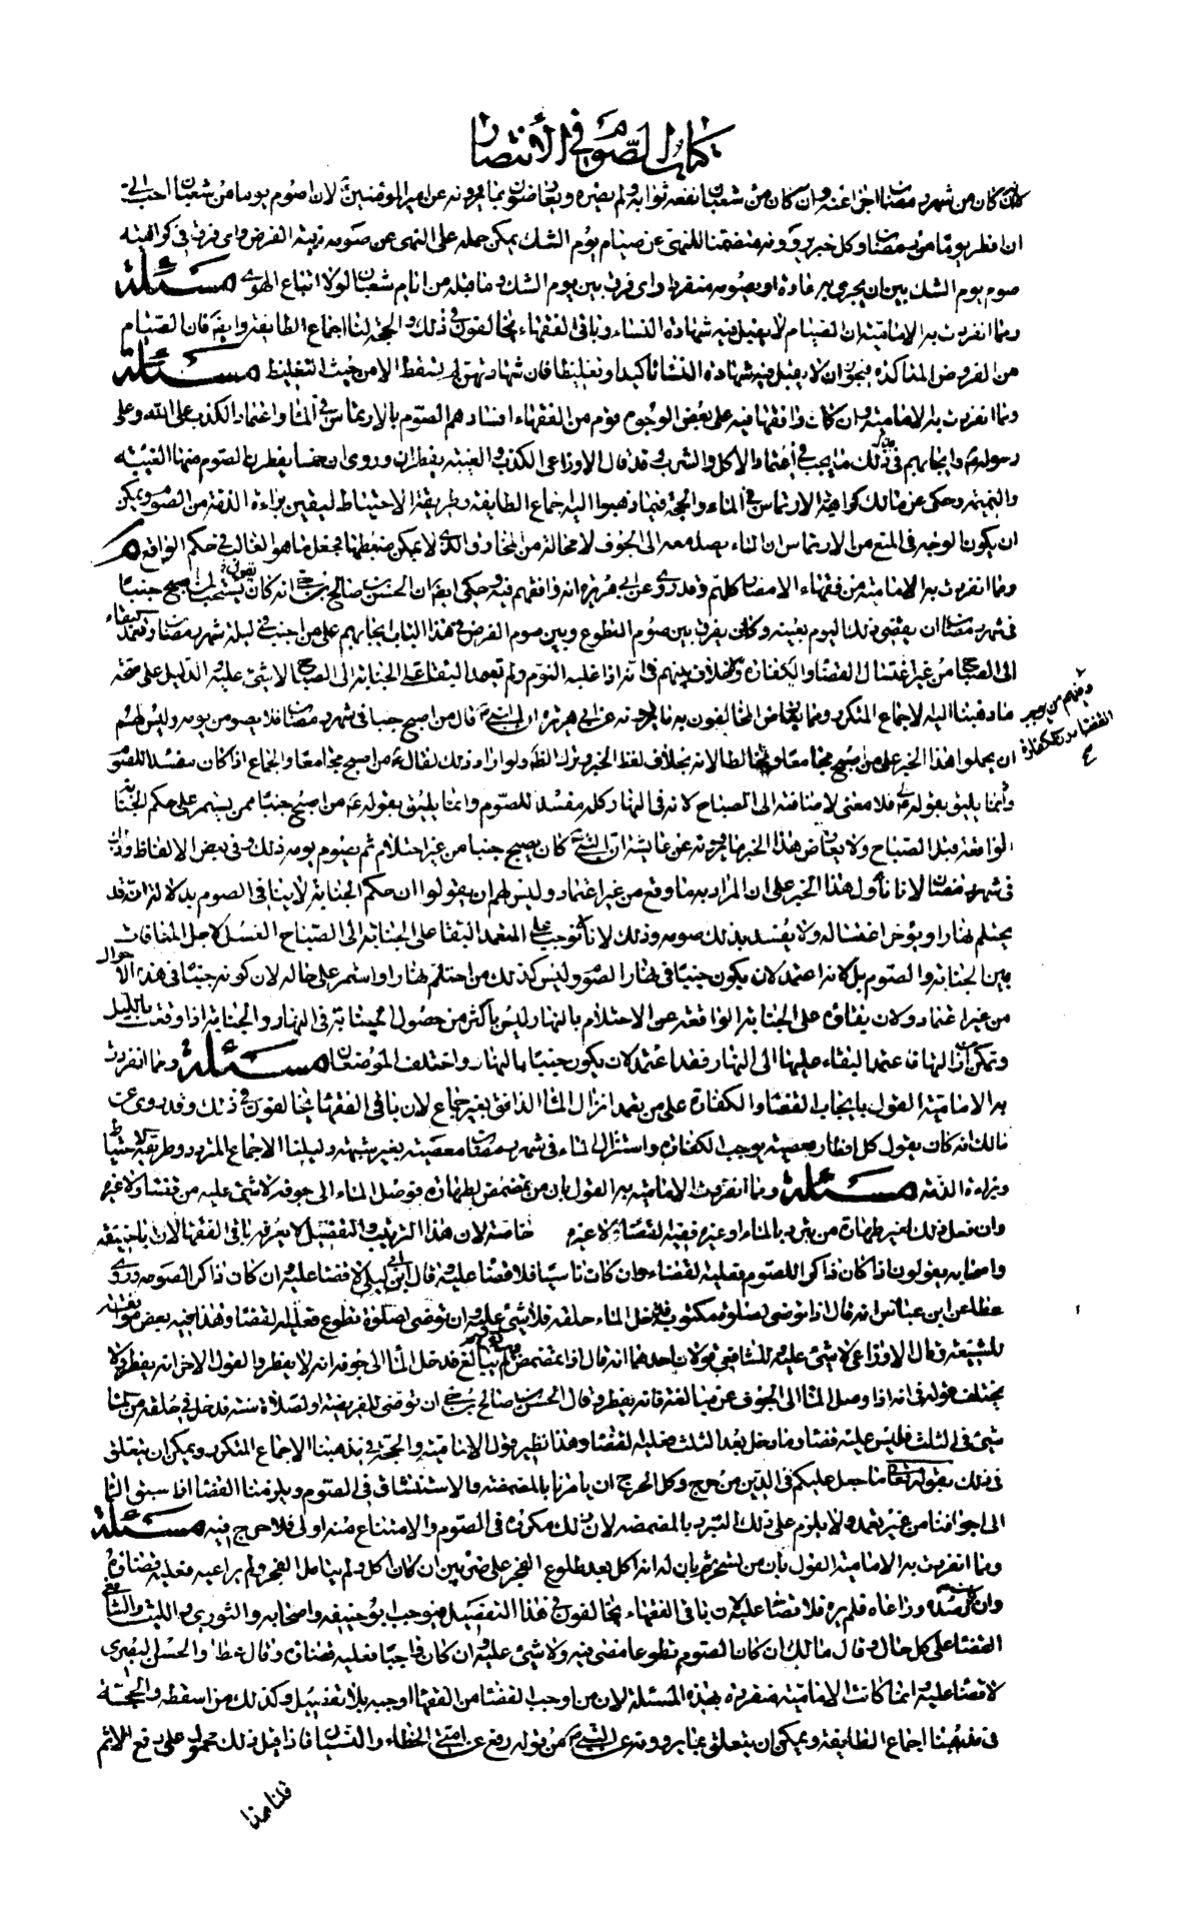 كتاب الصوم في الانتصار
كان من شهر رمضان اجزأ عنه وان كان من شعبان نفعه ثوابه ولم يضره ويعارضون بما يروونه عن امير المؤمنين لان اصوم يوما من شعبان احب الي
ان افطر يوما من رمضان وكل خبر يروونه متضمنا للنهي عن صيام يوم الشك يمكن حمله على النهي عن صومه بنية الفرض واي فرق في كراهية
صوم يوم الشك بين ان يجري به عادة او يصومه منفردا واي فرق بين يوم الشك وما قبله من ايام شعبان لولا اتباع الهوى مسئلة
ومما انفردت به الامامية ان الصيام لا يقبل فيه شهادة النساء وباقي الفقهاء يخالفون في ذلك والحجة لنا اجماع الطايفة وايضا فان الصيام
من الفروض المتاكدة فيجوز ان لا يقبل فيه شهادة النساء تاكيدا وتغليظا فان شهادتهن لم يسقط الا من حيث التغليظ مسئلة
ومما انفردت به الامامية وان كان وافقها فيه على بعض الوجوه قوم من الفقهاء افساد هم الصوم بالارتماس في الماء واعتماد الكذب على الله وعلى
رسوله وايجابهم في ذلك ما يجب في اعتماد الاكل والشرب وقد قال الاوزاعي الكذب والغيبة يفطران وروى ان خمسا يفطرن الصوم منها الغيبة
والنميمة وحكى عن مالك كراهية الارتماس في الماء والحجة فيما ذهبوا اليه اجماع الطايفة وطريقة الاحتياط ليقين براءة الذمة من الصوم ويمكن
ان يكون الوجه في المنع من الارتماس ان الماء يصل معه الى الجوف لا محالة من المخارق التي لا يمكن ضبطها فجعل ما هو الغالب في حكم الواقع م
ومما انفردت به الامامية من فقهاء الامصار كلهم وقد روي عن ابي هريرة انه وافقهم فيه وحكي ايضا ان الحسن بن صالح بن حي انه كان يستحب لمن اصبح جنبا
في شهر رمضان ان يقضي ذلك اليوم بعينه وكان يفرق بين صوم التطوع وبين صوم الفرض في هذا الباب ايجابهم على من اجنب في ليلة شهر رمضان وتعمد البقاء
الى الصباح من غير اغتسال القضاء والكفارة ولا خلاف بينهم في انه اذا غلبه النوم ولم يتعمد البقاء على الجنابة الى الصباح لا شيء عليه الدليل على صحة
وفيهم من يوجب
القضاء دون الكفارة
ما ذهبنا اليه الاجماع المتكرر ومما يعارض المخالفون به ما يروونه عن ابي هريرة ان النبي قال من اصبح جنبا في شهر رمضان فلا يصومن يومه وليس لهم
ان يحملوا هذا الخبر على من اصبح مجامعا لانه بخلاف لفظ الخبر وترك الظاهر ولو اراد ذلك لقال من اصبح مجامعا والجماع اذا كان مفسدا للصوم
وانما يليق بقوله فلا معنى لاضافته الى الصباح لانه في النهار كله مفسد للصوم وانما يليق بقوله من اصبح جنبا من يستمر على حكم الجنابة
الواقعة قبل الصباح ولا يعارض هذا الخبر ما يروونه عن عايشة ان النبي كان يصبح جنبا من غير احتلام ثم يصوم يومه ذلك وفي بعض الالفاظ وذلك
في شهر رمضان لانا نأول هذا الخبر على ان المراد به ما وقع من غير اعتماد وليس لهم ان يقولوا ان حكم الجنابة لا ينافي الصوم بدلالة انه قد
يحتلم نهارا ويؤخر اغتساله ولا يفسد بذلك صومه وذلك لانا لم نوجب على المتعمد البقاء على الجنابة الى الصباح الغسل لاجل المنافاة
بين الجنابة والصوم بل لانه اعتمد لان يكون جنبا في نهار الصوم وليس كذلك من احتلم نهارا واستمر على حاله لان كونه جنبا في هذه الاحوال
من غير اعتماد ولان بقاؤه على الجنابة الواقعة عن الاحتلام بالنهار ليس باكثر من حصول الجنابة في النهار والجنابة اذا وقعت بالليل
وتمكن من ازالتها فاعتمد البقاء عليها الى النهار فقد اعتمد لان يكون جنبا بالنهار واختلف الموضعان مسئلة ومما انفردت
به الامامية القول بايجاب القضاء والكفارة على من تعمد انزال الماء الدافق بغير جماع لان باقي الفقهاء يخالفون في ذلك وقد روي عن
مالك انه كان يقول كل افطار معصية يوجب الكفارة واستنزال الماء في شهر رمضان معصية بغير شبهة ودليلنا الاجماع المتردد وطريقة الاحتياط
وبراءة الذمة مسئلة ومما انفردت الامامية به القول بان من تمضمض لطهارة فوصل الماء الى جوفه لا شيء عليه من قضاء ولا غيره
وان فعل ذلك لغير طهارة من تبرد بالماء او غيره ففيه القضاء لا غيره خاصة لان هذا الترتيب والتفصيل لا يعرفه باقي الفقهاء لان ابا حنيفة
واصحابه يقولون اذا كان ذاكرا للصوم فعليه القضاء وان كان ناسيا فلا قضاء عليه وقال ابن ابي ليلى لا قضاء عليه ان كان ذاكرا لصومه وروى
عطا عن ابن عباس انه قال اذا توضى لصلوة مكتوبة فدخل الماء حلقه فلا شيء عليه وان توضى لصلوة تطوع فعليه القضاء وهذا فيه بعض موافقة
للشيعة وقال الاوزاعي لا شيء عليه وللشافعي قولان احدهما انه قال اذا تمضمض ولم يبالغ فدخل الماء الى جوفه انه لا يفطر والقول الاخر انه يفطر ولا
يختلف قوله في انه اذا وصل الماء الى الجوف عن مبالغة فانه يفطر وقال الحسن بن صالح بن حي ان توضى للفريضة او لصلاة سنة فدخل في حلقه من الماء
شيء في الثلث فليس عليه قضاء وما دخل بعد الثلث فعليه القضاء وهذا نظير قول الامامية والحجة في مذهبنا الاجماع المتكرر ويمكن ان يتعلق
في ذلك بقوله تعالى ما جعل عليكم في الدين من حرج وكل الحرج ان يامرنا بالمضمضة والاستنشاق في الصوم ويلزمنا القضاء اذا سبق الماء
الى اجوافنا من غير تعمد ولا يلزم على ذلك التبرد بالمضمضة لان ذلك مكروه في الصوم والامتناع منه اولى فلا حرج فيه مسئلة
ومما انفردت به الامامية القول بان من تسحر ثم بان له انه اكل بعد طلوع الفجر على ضربين ان كان اكل ولم يتامل الفجر ولم يراعيه فعليه قضاؤه
وان كان رصده وراعاه فلم يره فلا قضاء عليه لان باقي الفقهاء يخالفون في هذا التفصيل فيوجب ابو حنيفة واصحابه والثوري والليث والشافعي
القضاء على كل حال وقال مالك ان كان الصوم تطوعا مضى فيه ولا شيء عليه وان كان واجبا فعليه قضاؤه وقال عطا والحسن البصري
لا قضاء عليه وانما كانت الامامية منفردة بهذه المسئلة لان من اوجب القضاء من الفقهاء اوجبه بلا تفصيل وكذلك من اسقطه والحجة
في مذهبنا اجماع الطايفة ويمكن ان يتعلق بما يروونه عن النبي من قوله رفع عن امتي الخطاء والنسيان فاذا قيل ذلك محمول على رفع الاثم
قلنا هذا